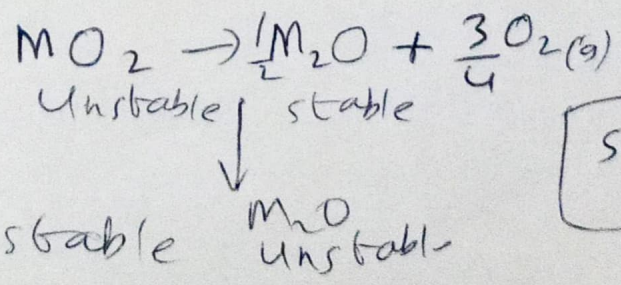 MO2 → 1/2 M2O + 3/4 O2(g)
Unstable ↓ stable
S
stable M2O
unstable